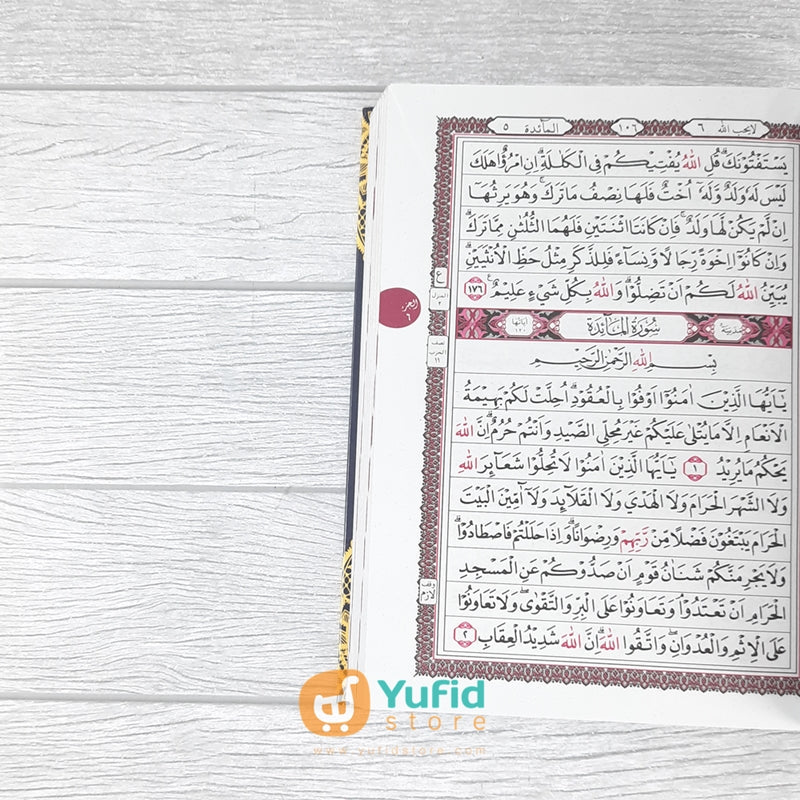 لايحب الله ٦
١٠٦
المآئدة ٥
يَسْتَفْتُوْنَكَۗ قُلِ اللّٰهُ يُفْتِيْكُمْ فِى الْكَلٰلَةِۗ اِنِ امْرُؤٌا هَلَكَ
لَيْسَ لَهٗ وَلَدٌ وَّلَهٗٓ اُخْتٌ فَلَهَا نِصْفُ مَا تَرَكَۚ وَهُوَ يَرِثُهَآ
اِنْ لَّمْ يَكُنْ لَّهَا وَلَدٌۚ فَاِنْ كَانَتَا اثْنَتَيْنِ فَلَهُمَا الثُّلُثٰنِ مِمَّا تَرَكَۗ
وَاِنْ كَانُوْٓا اِخْوَةً رِّجَالًا وَّنِسَاۤءً فَلِلذَّكَرِ مِثْلُ حَظِّ الْاُنْثَيَيْنِۗ
يُبَيِّنُ اللّٰهُ لَكُمْ اَنْ تَضِلُّوْاۗ وَاللّٰهُ بِكُلِّ شَيْءٍ عَلِيْمٌ ١٧٦
ع
المنزل ٢
الجزء ٦
نصف الحزب ١١
مدنية
سُوْرَةُ الْمَآئِدَةِ
اٰياتها ١٢٠
بِسْمِ اللّٰهِ الرَّحْمٰنِ الرَّحِيْمِ
يٰٓاَيُّهَا الَّذِيْنَ اٰمَنُوْٓا اَوْفُوْا بِالْعُقُوْدِۗ اُحِلَّتْ لَكُمْ بَهِيْمَةُ
الْاَنْعَامِ اِلَّا مَا يُتْلٰى عَلَيْكُمْ غَيْرَ مُحِلِّى الصَّيْدِ وَاَنْتُمْ حُرُمٌۗ اِنَّ اللّٰهَ
يَحْكُمُ مَا يُرِيْدُ ١ يٰٓاَيُّهَا الَّذِيْنَ اٰمَنُوْا لَا تُحِلُّوْا شَعَاۤئِرَ اللّٰهِ
وَلَا الشَّهْرَ الْحَرَامَ وَلَا الْهَدْيَ وَلَا الْقَلَاۤئِدَ وَلَآ اٰۤمِّيْنَ الْبَيْتَ
الْحَرَامَ يَبْتَغُوْنَ فَضْلًا مِّنْ رَّبِّهِمْ وَرِضْوَانًاۗ وَاِذَا حَلَلْتُمْ فَاصْطَادُوْاۗ
وَلَا يَجْرِمَنَّكُمْ شَنَاٰنُ قَوْمٍ اَنْ صَدُّوْكُمْ عَنِ الْمَسْجِدِ
الْحَرَامِ اَنْ تَعْتَدُوْاۘ وَتَعَاوَنُوْا عَلَى الْبِرِّ وَالتَّقْوٰىۖ وَلَا تَعَاوَنُوْا
وقف لازم
عَلَى الْاِثْمِ وَالْعُدْوَانِۖ وَاتَّقُوا اللّٰهَۗ اِنَّ اللّٰهَ شَدِيْدُ الْعِقَابِ ٢
Yufid
store
www.yufidstore.com